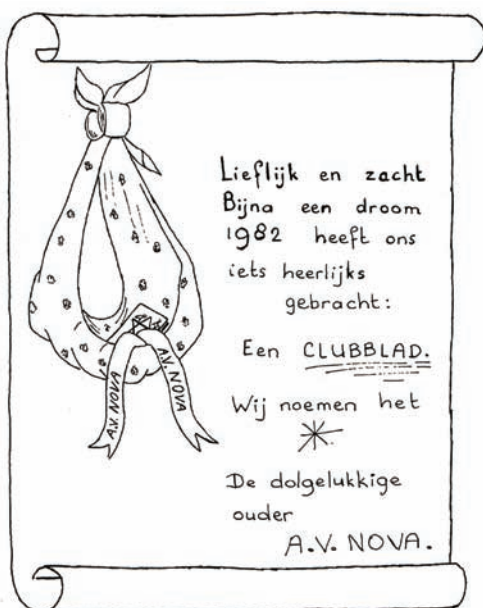 Lieflijk en zacht
Bijna een droom
1982 heeft ons
iets heerlijks
gebracht:
Een CLUBBLAD.
Wij noemen het
De dolgelukkige
ouder
A.V. NOVA.
A.V. NOVA
A.V. NOVA